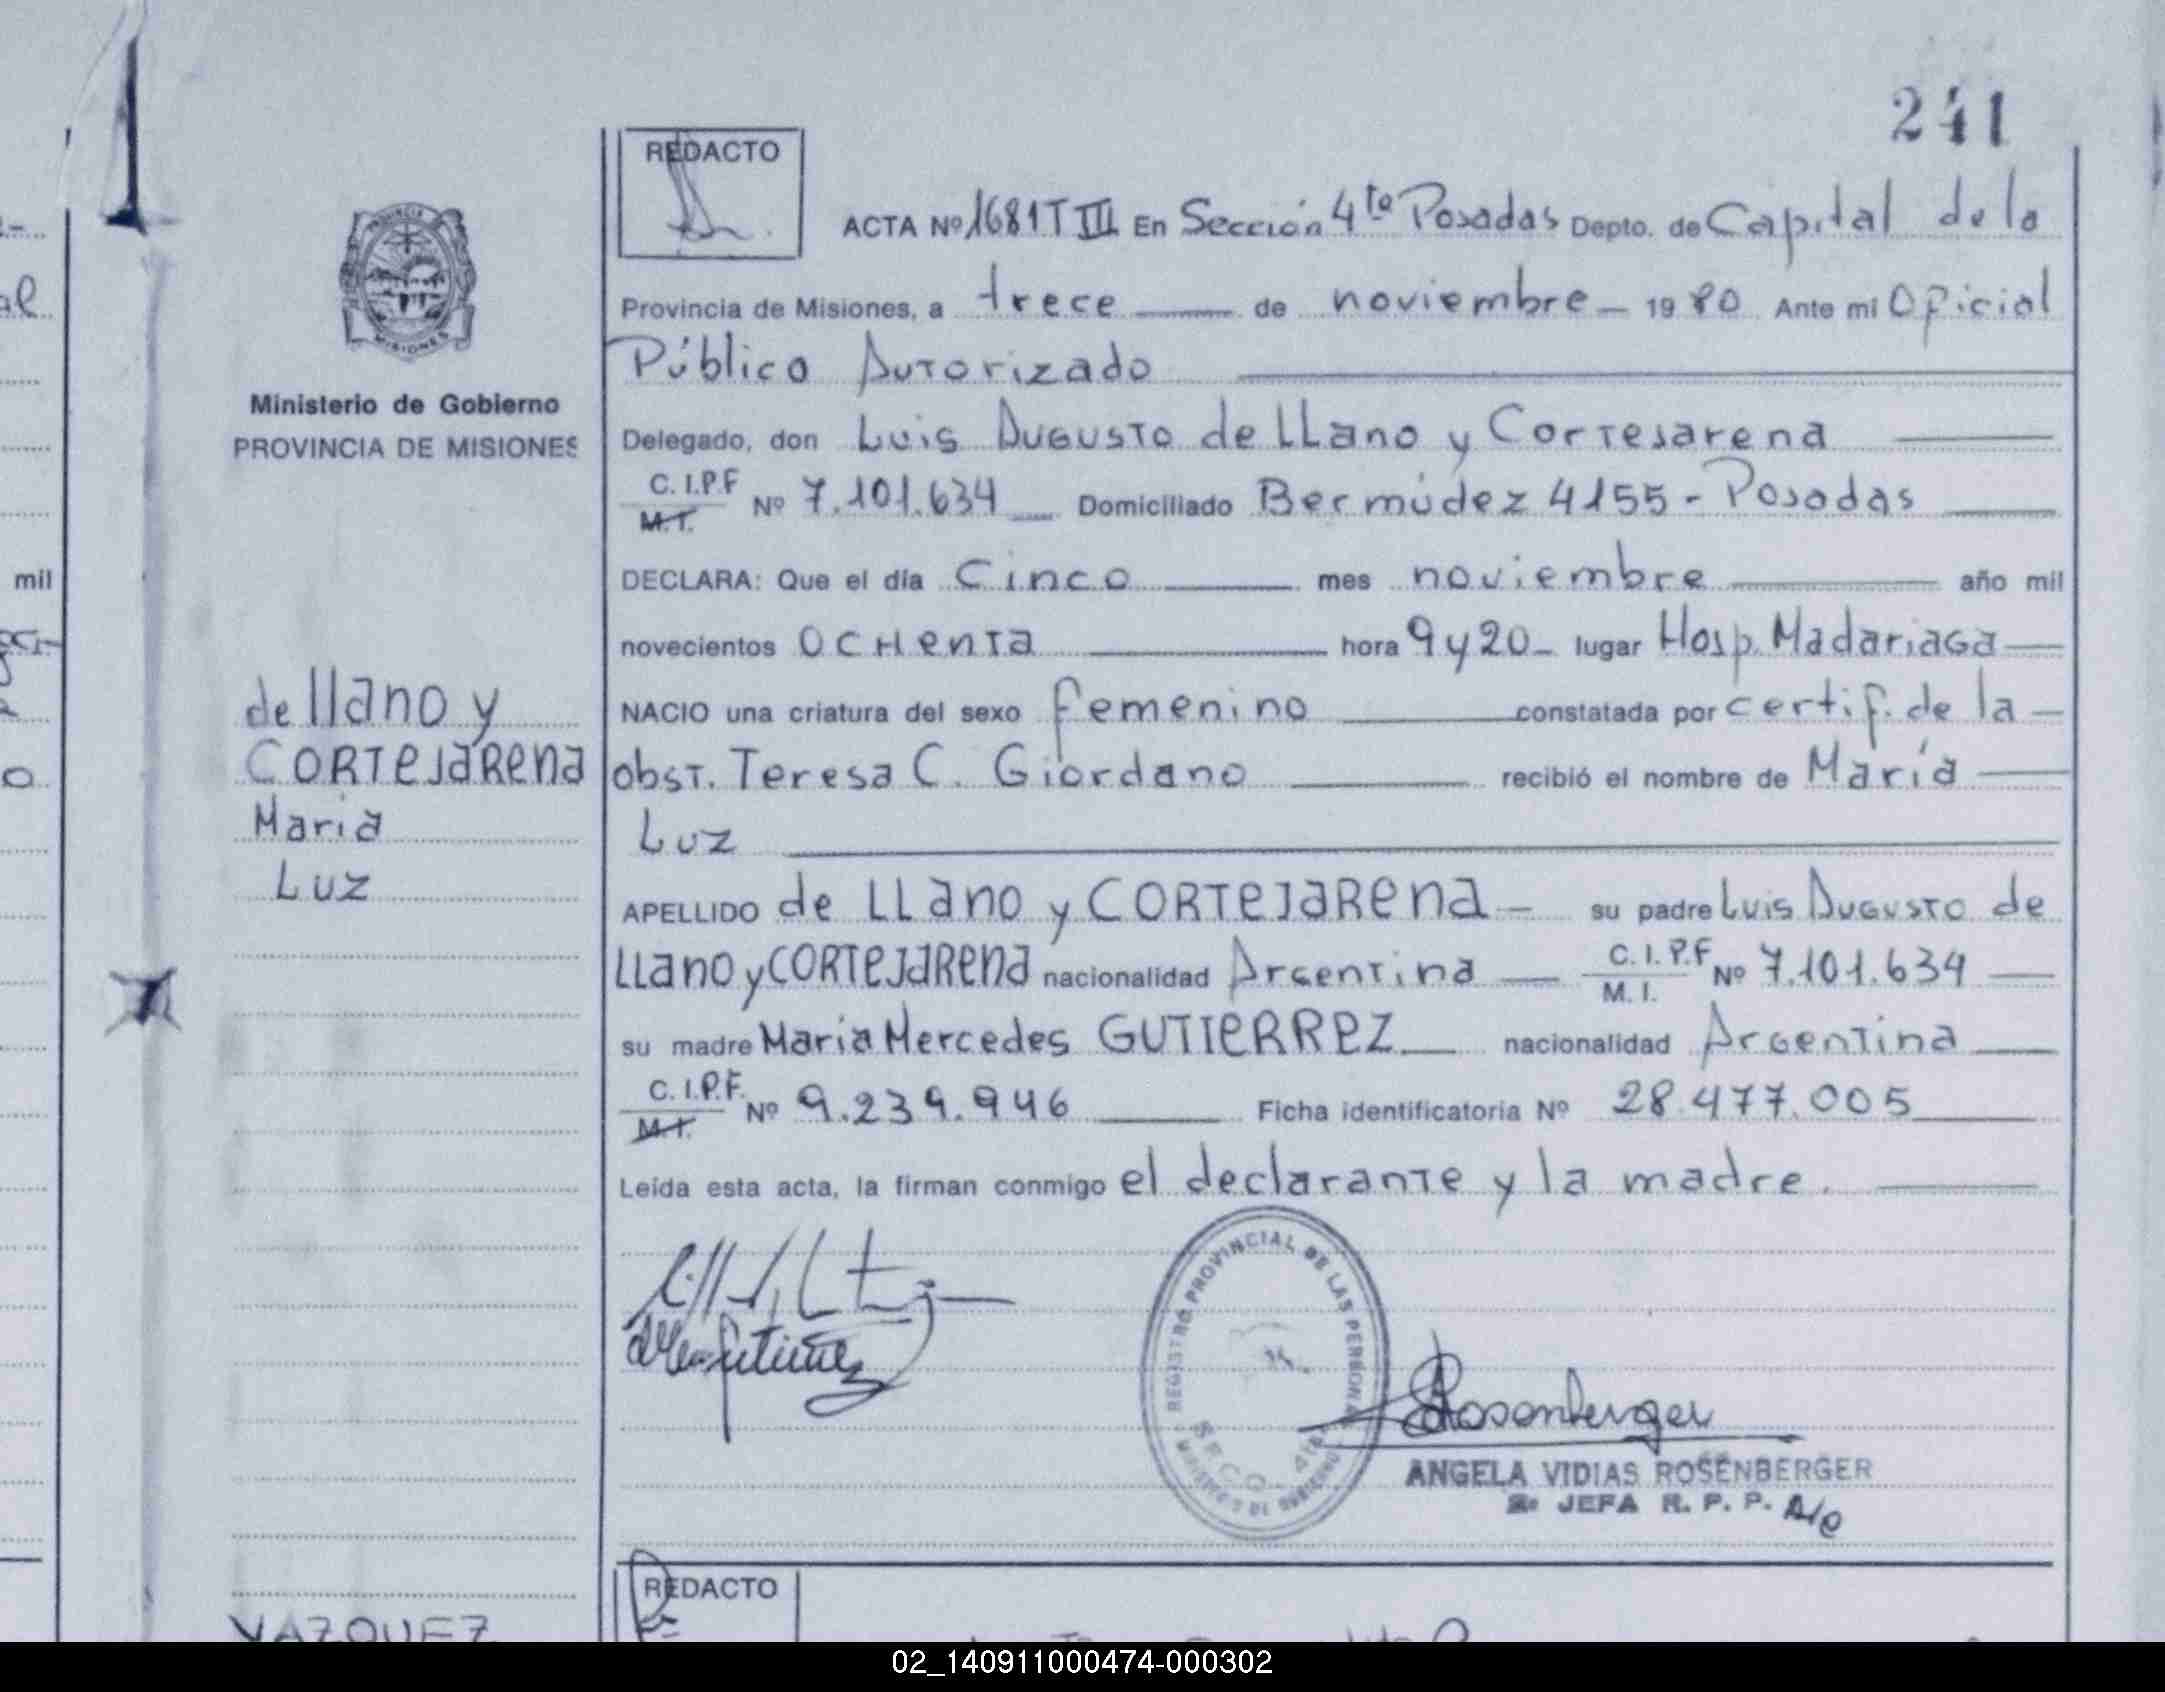 241
REDACTO
ACTA Nº 1681 T III En Sección 4to Posadas Depto. de Capital de la
Provincia de Misiones, a trece de noviembre 1980 Ante mi Oficial
Público Autorizado
Delegado, don Luis Augusto de Llano y Cortejarena
C.I.P.F
M.I. Nº 7.101.634 Domiciliado Bermúdez 4155 - Posadas
DECLARA: Que el día Cinco mes noviembre año mil
novecientos OCHenta hora 9 y 20 lugar Hosp. Madariaga
NACIO una criatura del sexo femenino constatada por certif. de la
obst. Teresa C. Giordano recibió el nombre de María
Luz
APELLIDO de LLano y CORTeJaRena su padre Luis Augusto de
LLano y CORTeJaRena nacionalidad Argentina C.I.P.F
M.I. Nº 7.101.634
su madre Maria Mercedes GUTIERREZ nacionalidad Argentina
C.I.P.F.
M.I. Nº 9.239.946 Ficha identificatoria Nº 28.477.005
Leída esta acta, la firman conmigo el declarante y la madre.
PROVINCIA
MISIONES
Ministerio de Gobierno
PROVINCIA DE MISIONES
de llano y
CORTeJaRena
Maria
Luz
REGISTRO PROVINCIAL DE LAS PERSONAS
SECC. 4ta
MINISTERIO DE GOBIERNO
Rosenberger
ANGELA VIDIAS ROSENBERGER
2º JEFA R. P. P. A/C
REDACTO
VAZQUEZ
mil
02_140911000474-000302